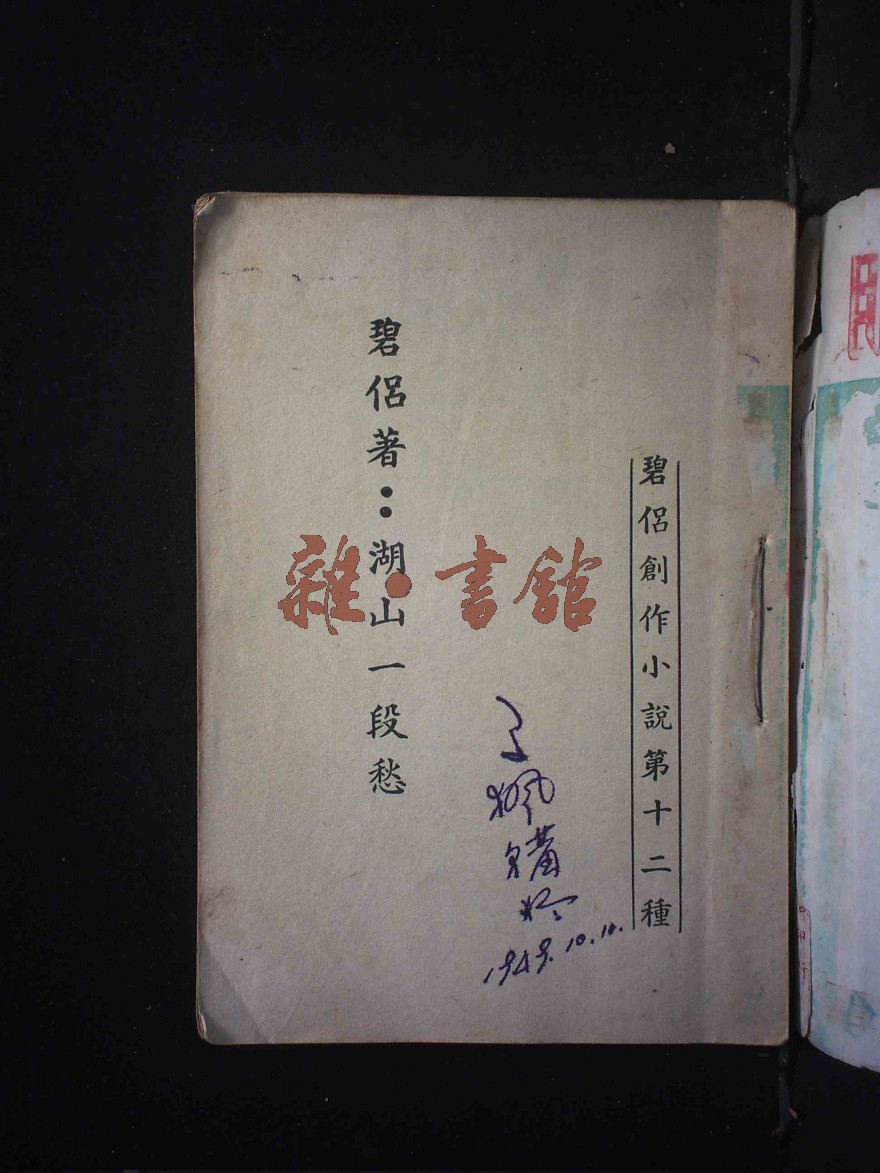 碧侶創作小說第十二種
碧侶著：湖山一段愁
雜·書館
1949.10.10.